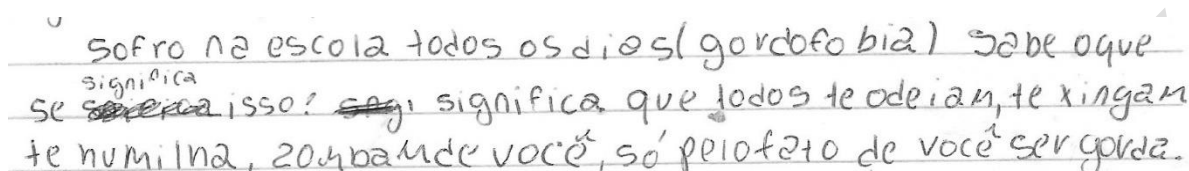 sofro na escola todos os dias (gordofobia) sabe oque
significa
se isso? significa que todos te odeiam, te xingam
te humilha, zombam de você, só pelo fato de você ser gorda.